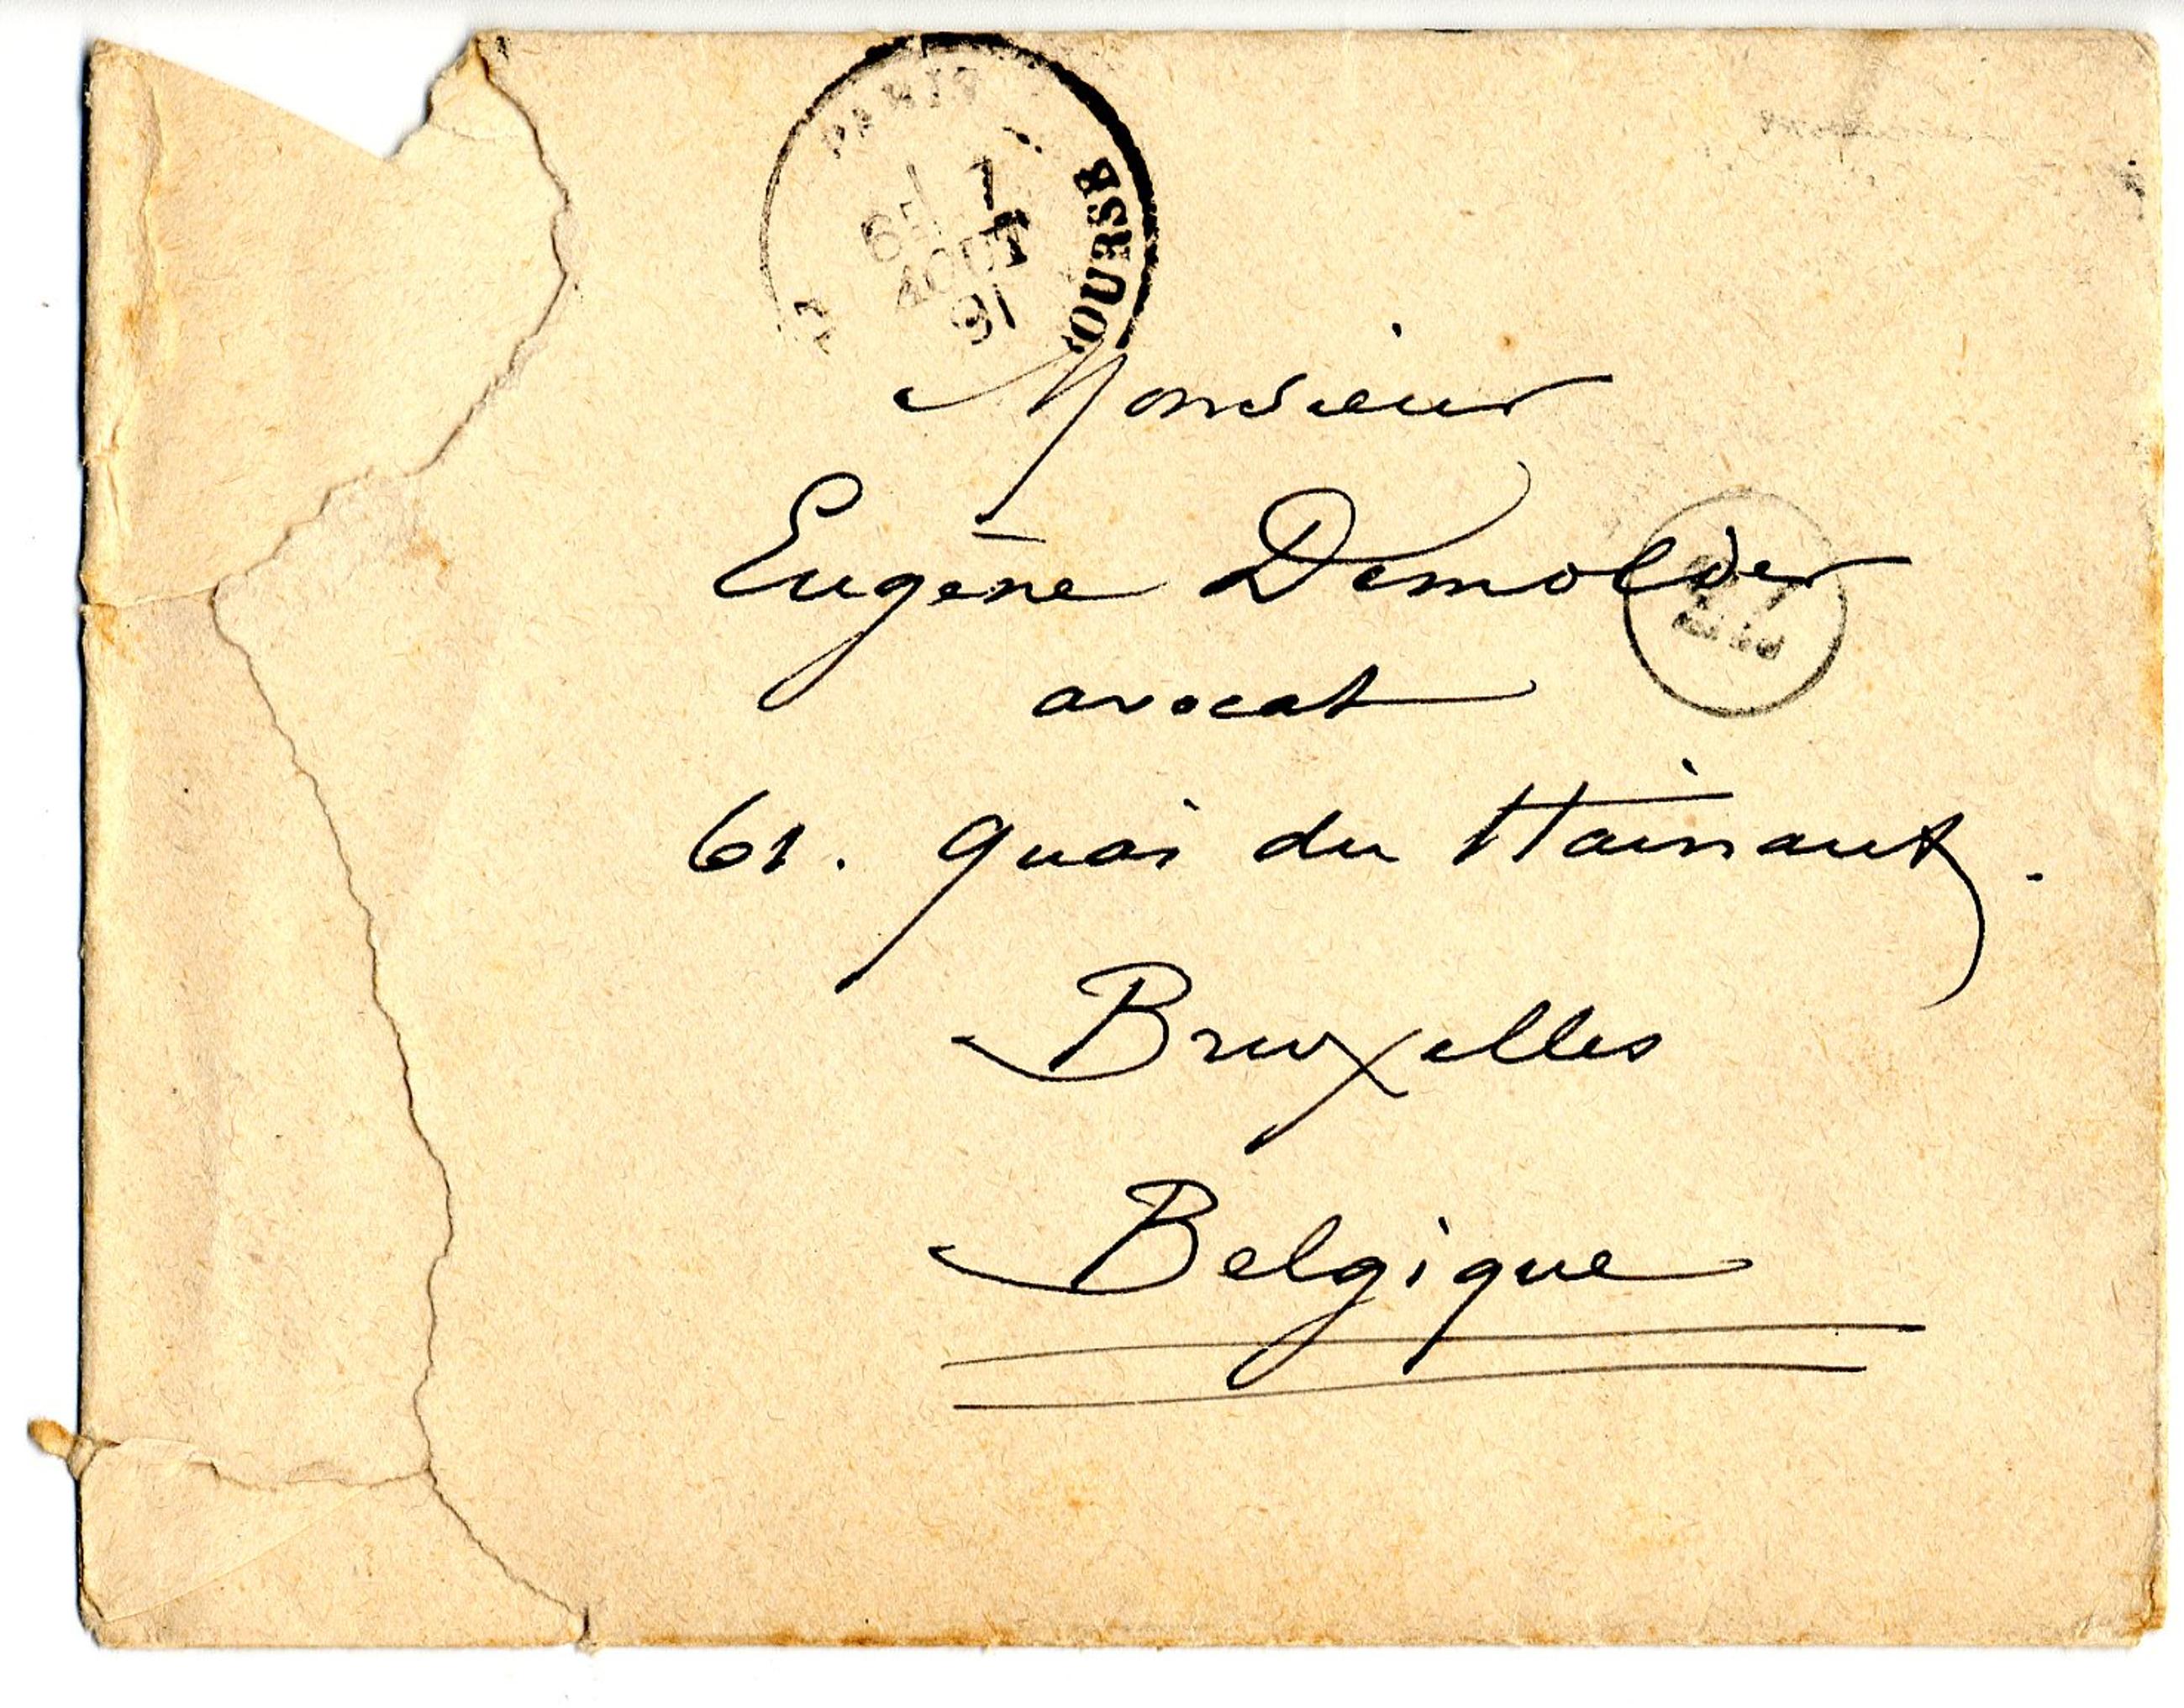 PARIS
AOUT
91
OURSE
Monsieur
Eugène Demolder
avocat
61. quai du Hainaut.
Bruxelles
Belgique